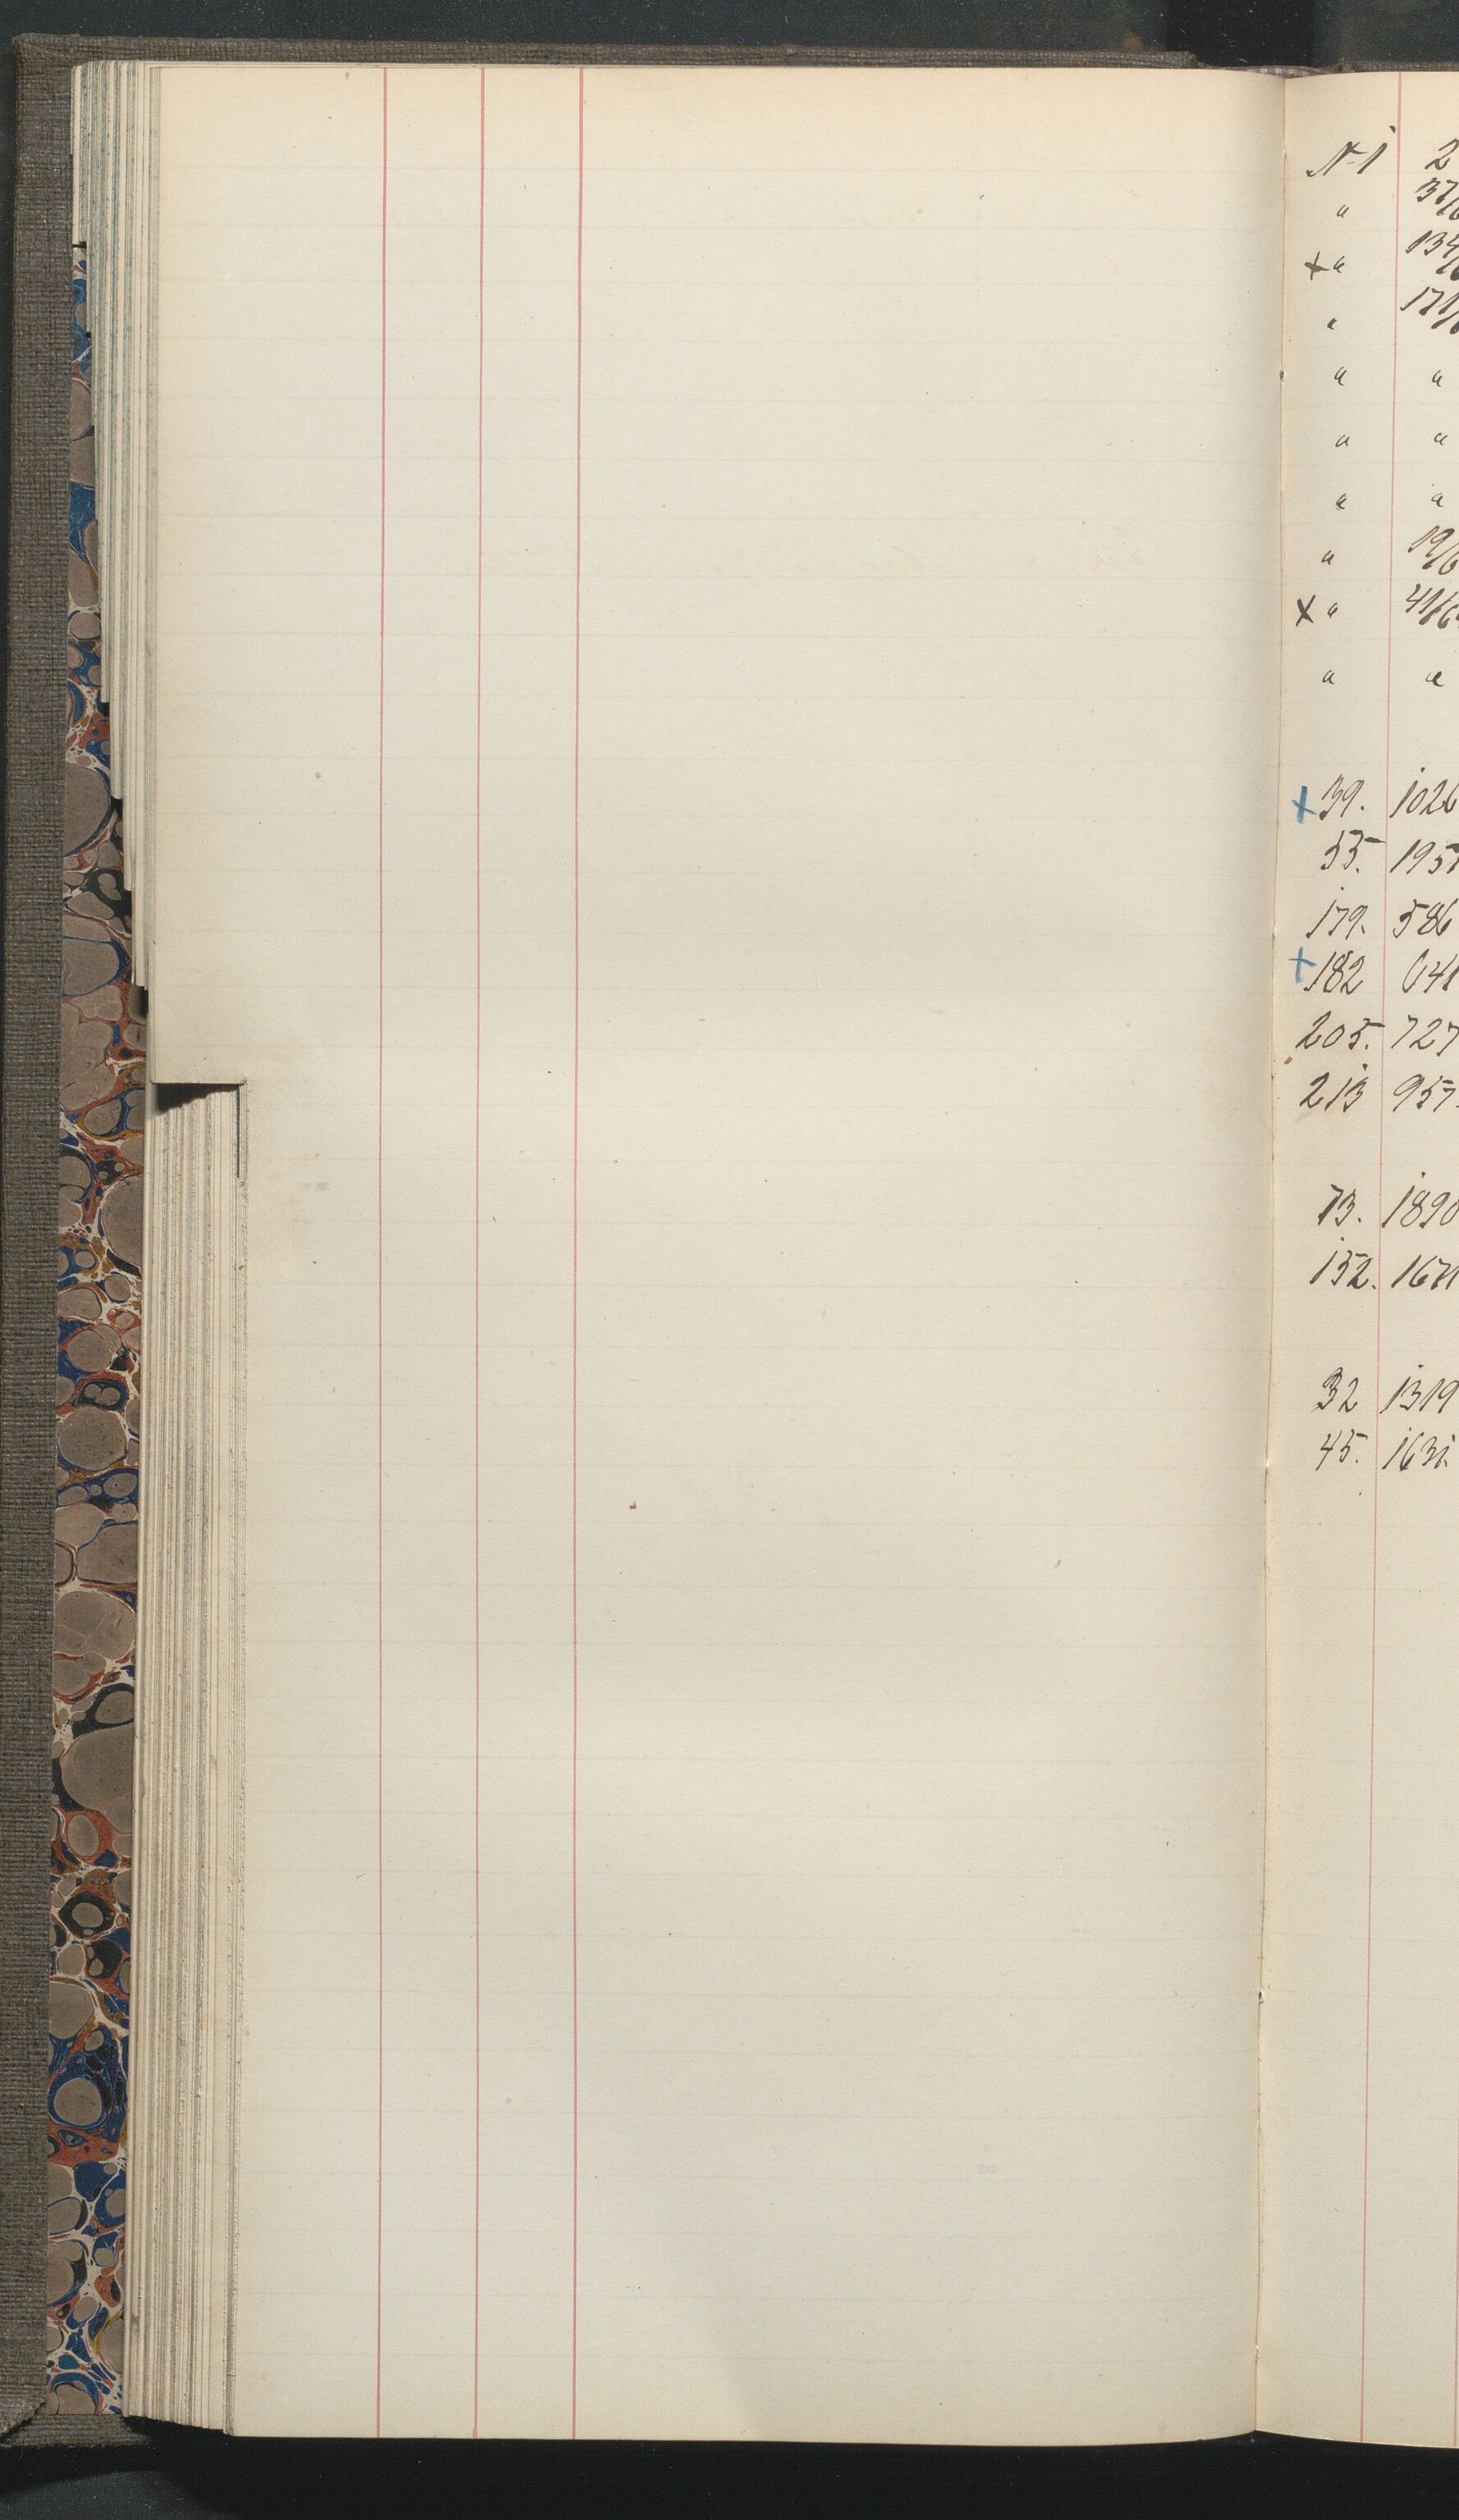 N 1 2
" 37/6
x " 134/6
" 171/6
" "
" "
" "
" 19/6
x " 41/6
" "
x 39. 1026
55. 195
179. 586
x 182 641
205. 727
213 957.
73. 1890
152. 1671
32 1319
45. 1631.